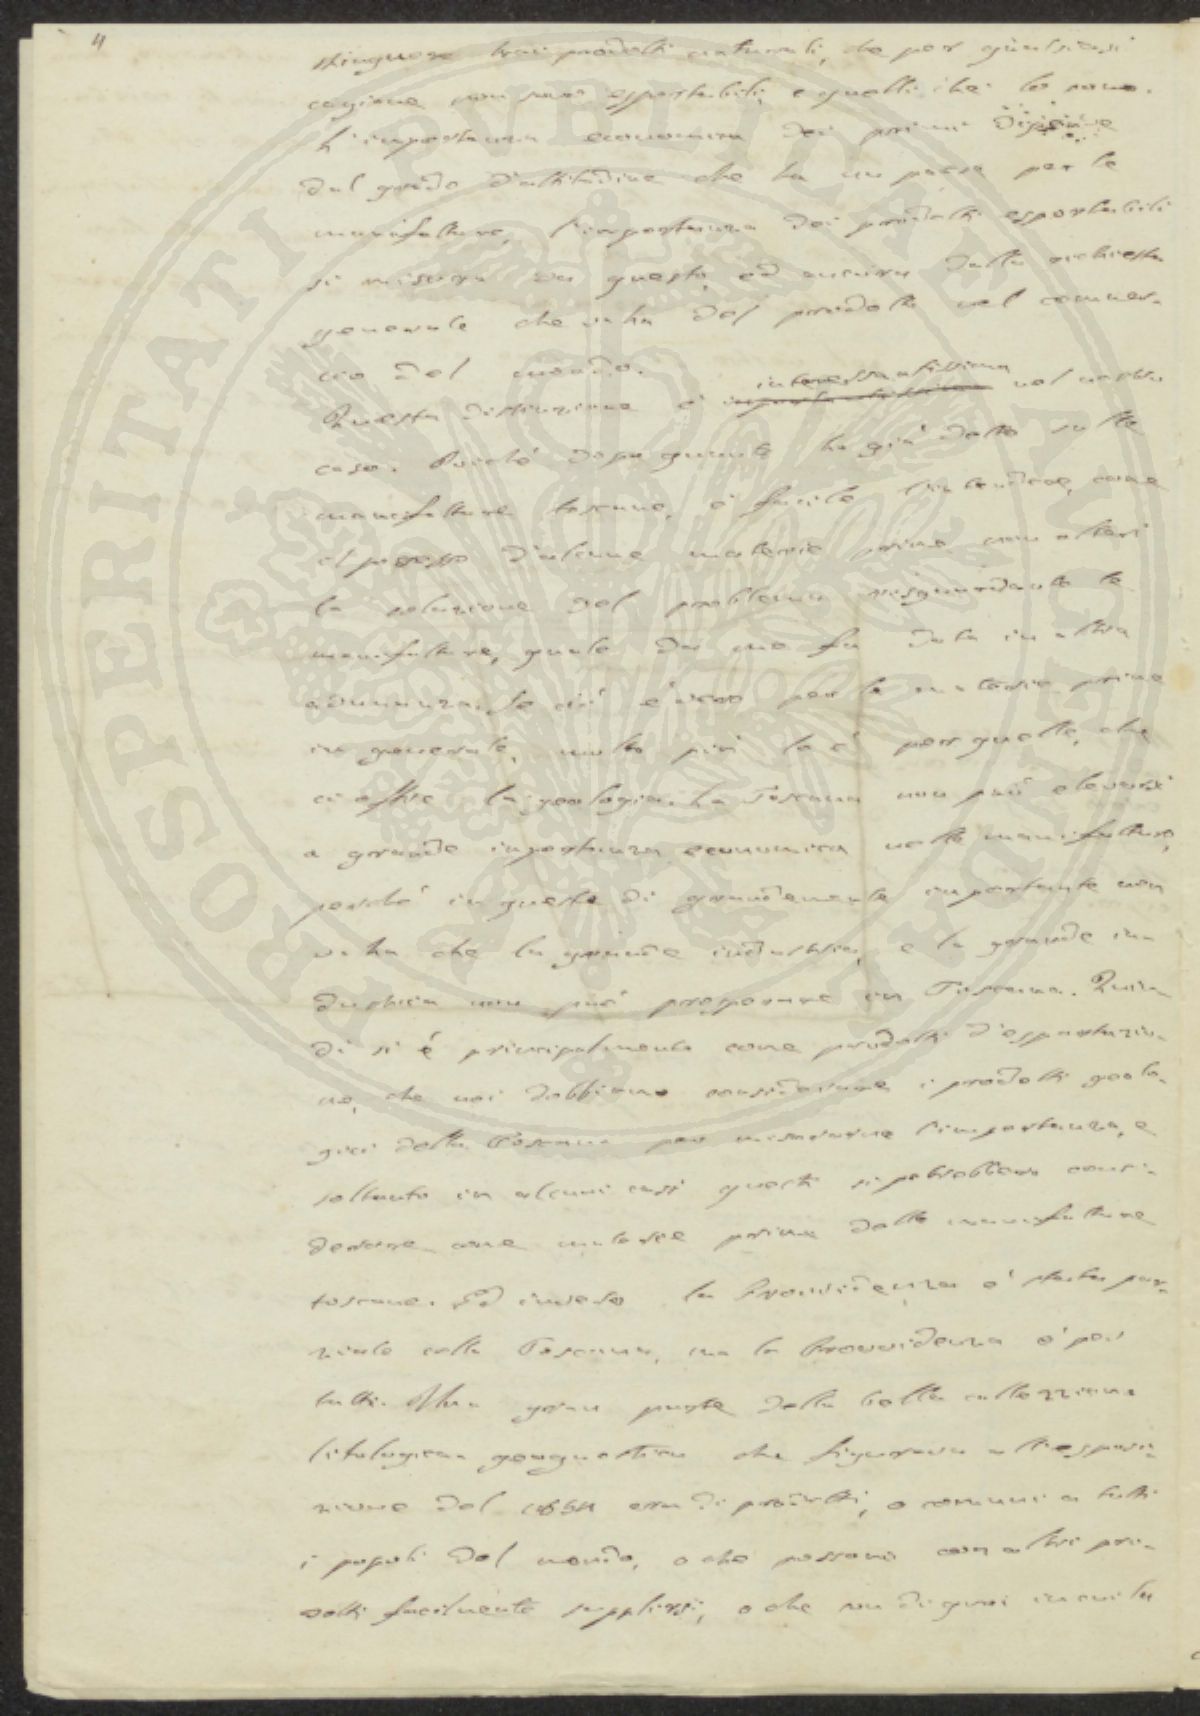 4
stinguere trai prodotti naturali, che per qualsiasi
cagione non sono esportabili, e quelli che lo sono.
L'importanza economica dei primi
dal grado d'attitudine che ha un paese per le
manifatture, l'importanza dei prodotti esportabili
si misura da questo, ed ancora dalla richiesta
generale che v'ha del prodotto nel commer-
cio del mondo.
Questa distinzione è interessantissima nel nostro
caso. Poiché dopo quanto ho già detto sulle
manifatture toscane, è facile l'intendere, come
il possesso d'alcune materie prime non alteri
la soluzione del problema risguardante le
manifatture, quale da me fu data in altra
adunanza. Se ciò è vero per le materie prime
in generale, molto più lo è per quelle, che
ci offre la geologia. La Toscana non può elevarsi
a grande importanza economica nelle manifatture,
perché in queste di grandemente importante non
v'ha che la grande industria, e la grande in-
dustria non può prosperare in Toscana. Quin-
di si è principalmente come prodotti d'esportazio-
ne, che noi dobbiamo considerare i prodotti geolo-
gici della Toscana per misurarne l'importanza, e
soltanto in alcuni casi questi si potrebbero consi-
derare come materie prime delle manifatture
toscane. Ed invero la Provvidenza è stata par-
ziale colla Toscana, ma la Provvidenza è per
tutti. Una gran parte della bella collezione
litologica geognostica che figurava all'esposi-
zione del 1854 era di prodotti, o comuni a tutti
i popoli del mondo, o che possono con altri pro-
dotti facilmente supplirsi, o che